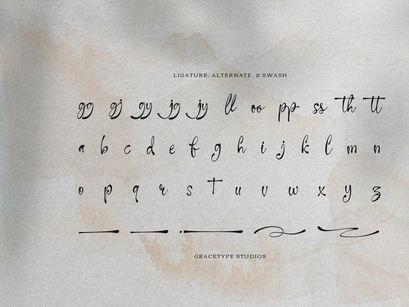 LIGATURE, ALTERNATE, & SWASH
gg gj gy jg jy ll oo pp ss th tt
a b c d e f g h i j k l m n
o p q r s t u v w x y z
GRACETYPE STUDIOS